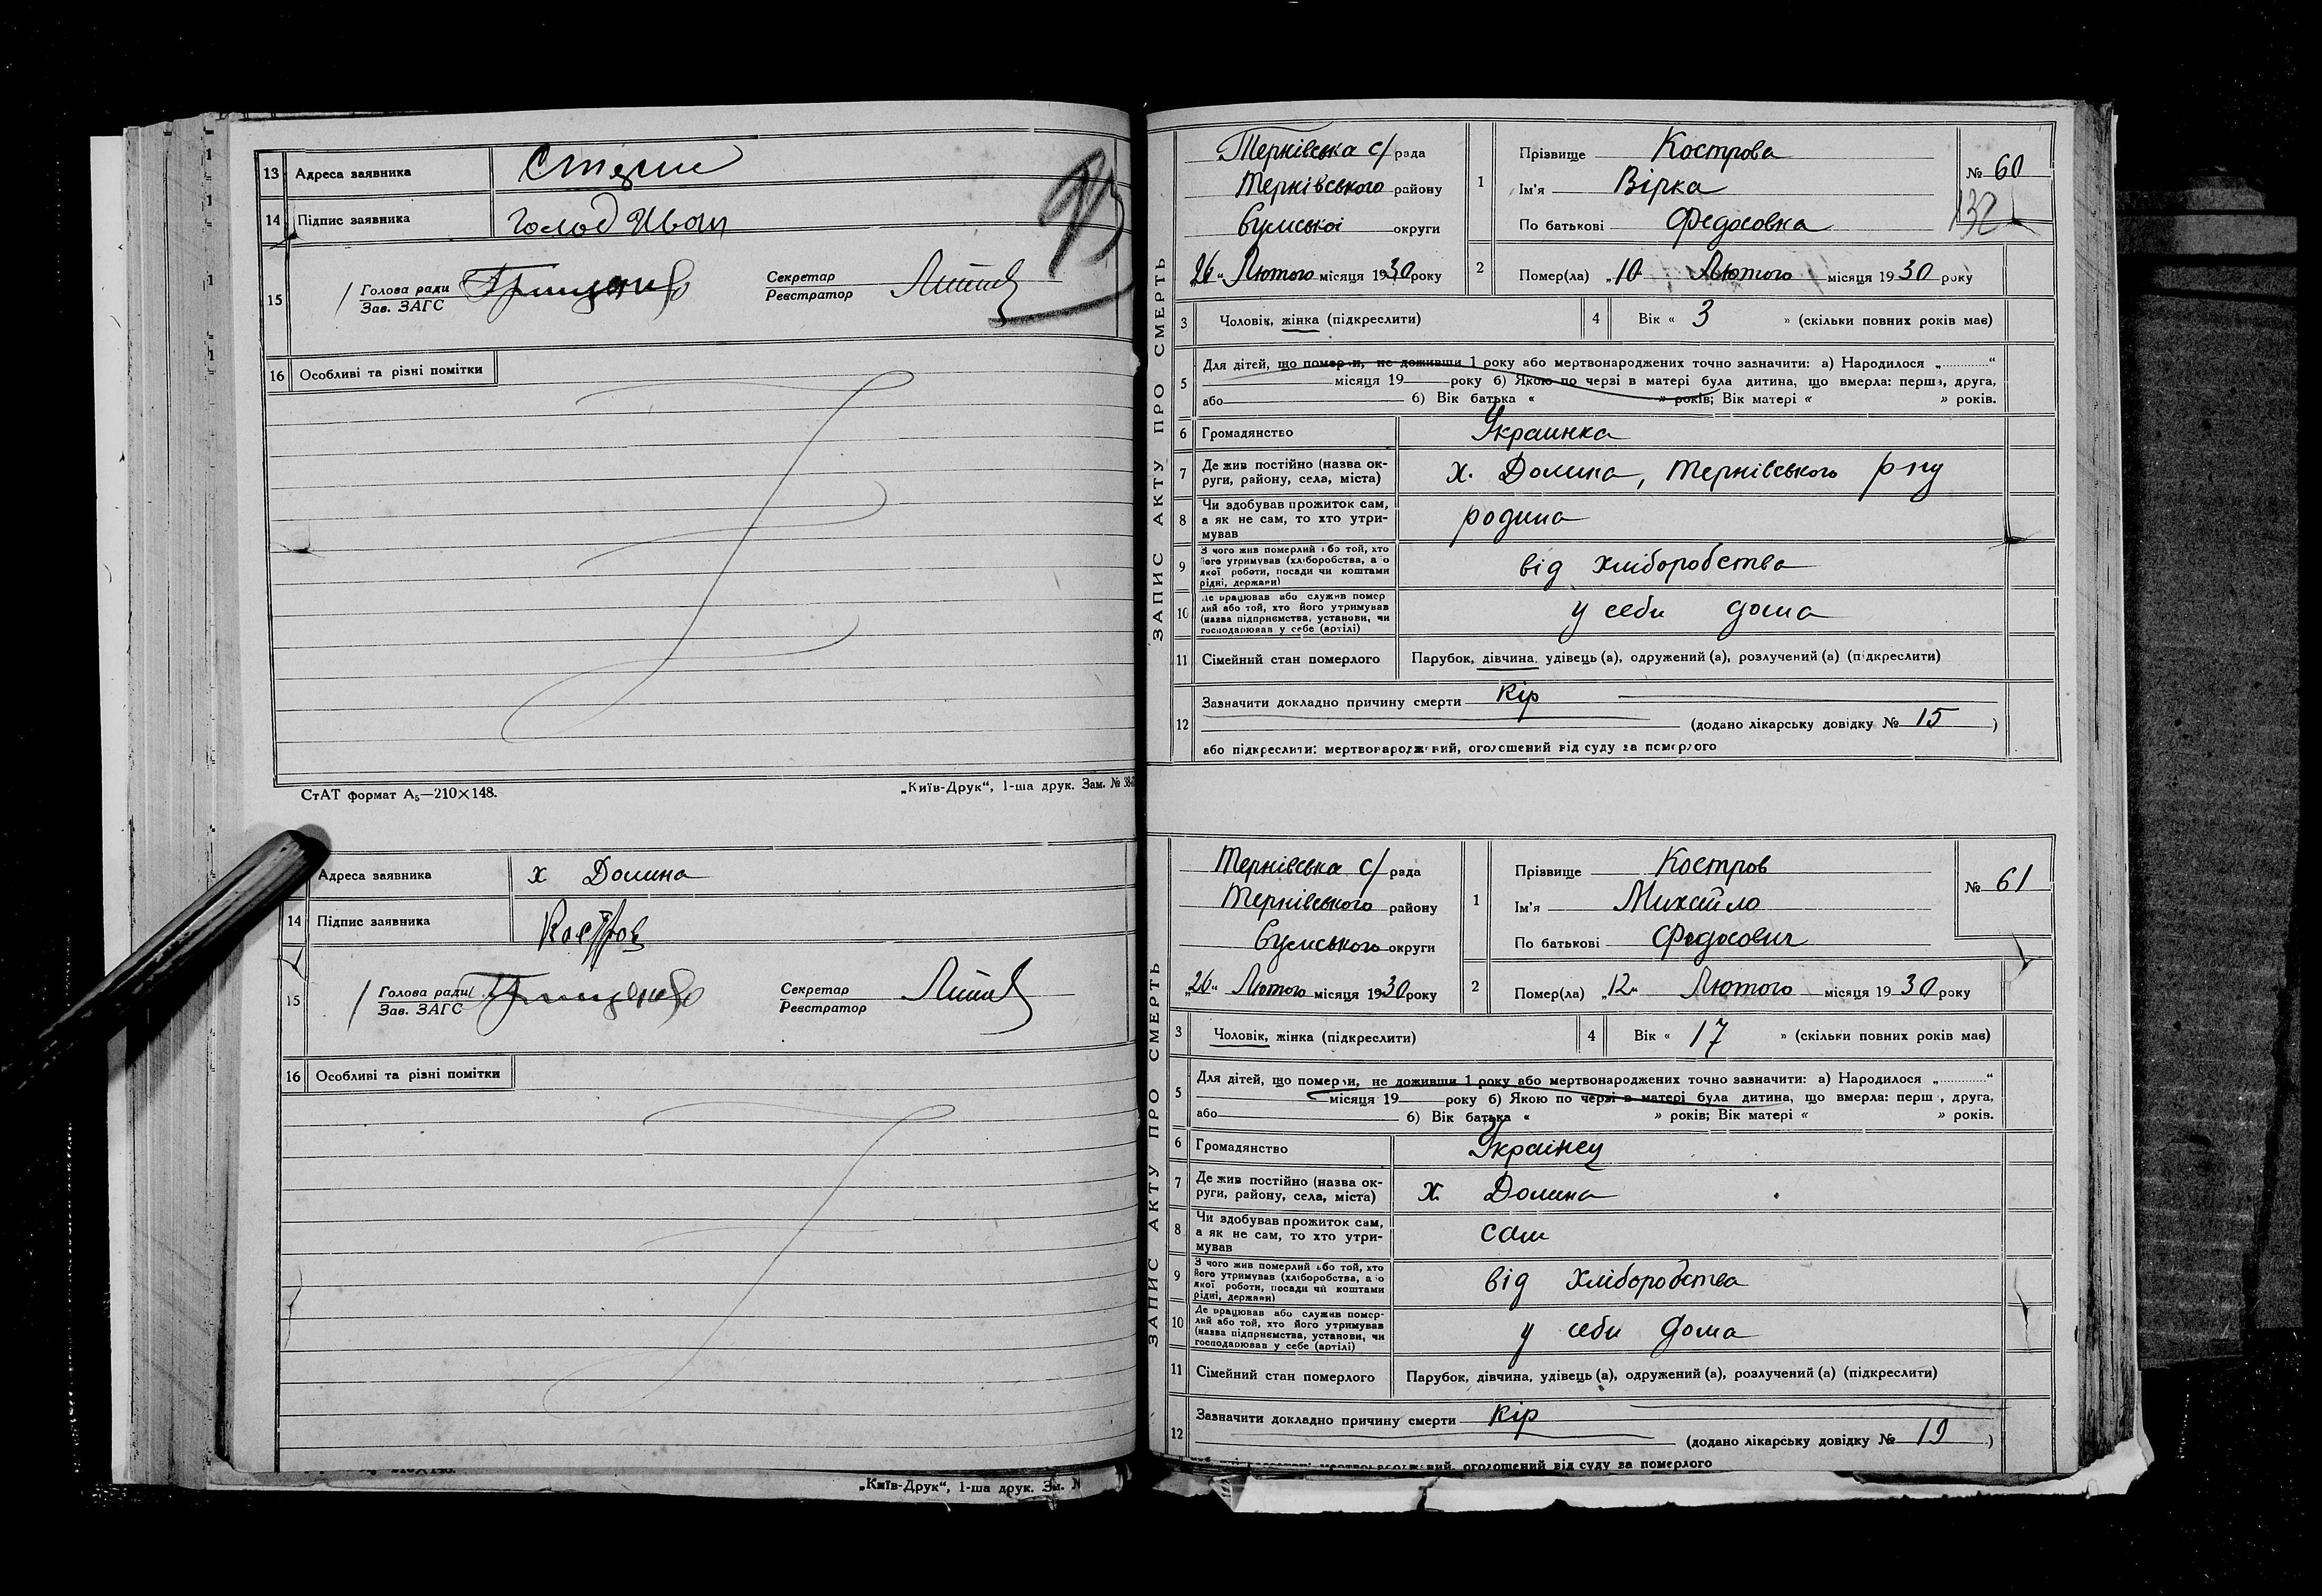 13 Адреса заявника Стецки
14 Підпис заявника Голод Иван
15 Голова ради Секретар
Зав. ЗАГС Реєстратор
16 Особливі та різні помітки
СтАТ формат А₅—210×148. „Київ-Друк“, 1-ша друк. Зам. №
Адреса заявника х Долина
14 Підпис заявника Костров
15 Голова ради Секретар
Зав. ЗАГС Реєстратор
16 Особливі та різні помітки
„Київ-Друк“, 1-ша друк. Зм. N
ЗАПИС АКТУ ПРО СМЕРТЬ
Тернівська с/рада
Тернівського району
Сумської округи
„26“ Лютого місяця 1930 року
1 Прізвище Кострова
Ім'я Вірка
По батькові Федосовна
№ 60
132
2 Помер(ла) „10 Лютого місяця 1930 року
3 Чоловік, жінка (підкреслити) 4 Вік « 3 » (скільки повних років має)
5 Для дітей, що померли, не доживши 1 року або мертвонароджених точно зазначити: а) Народилося „............“
місяця 19 року б) Якою по черзі в матері була дитина, що вмерла: перша, друга,
або б) Вік батька « » років; Вік матері « » років.
6 Громадянство Украинка
7 Де жив постійно (назва ок-
руги, району, села, міста) х. Долина, Тернівського р-ну
8 Чи здобував прожиток сам,
а як не сам, то хто утри-
мував родина
9 З чого жив померлий або той, хто
його утримував (хліборобства, або
якої роботи, посади чи коштами
рідні, держави) від хліборобства
10 Де працював або служив помер
лий або той, хто його утримував
(назва підприємства, установи, чи
господарював у себе (артілі) у себи дома
11 Сімейний стан померлого Парубок, дівчина, удівець (а), одружений (а), розлучений (а) (підкреслити)
12 Зазначити докладно причину смерти Кір
(додано лікарську довідку № 15 )
або підкреслити: мертвонароджений, оголошений від суду за померлого
ЗАПИС АКТУ ПРО СМЕРТЬ
Тернівська с/рада
Тернівського району
Сумського округи
„26“ Лютого місяця 1930 року
1 Прізвище Костров
Ім'я Михайло
По батькові Федосович
№ 61
2 Помер(ла) „12“ Лютого місяця 1930 року
3 Чоловік, жінка (підкреслити) 4 Вік « 17 » (скільки повних років має)
5 Для дітей, що померли, не доживши 1 року або мертвонароджених точно зазначити: а) Народилося „............“
місяця 19 року б) Якою по черзі в матері була дитина, що вмерла: перш, друга,
або б) Вік батька « » років; Вік матері « » років.
6 Громадянство Украінец
7 Де жив постійно (назва ок-
руги, району, села, міста) х Долина
8 Чи здобував прожиток сам,
а як не сам, то хто утри-
мував сам
9 З чого жив померлий або той, хто
його утримував (хліборобства, або
якої роботи, посади чи коштами
рідні, держави) від хліборобства
10 Де працював або служив помер-
лий або той, хто його утримував
(назва підприємства, установи, чи
господарював у себе (артілі) у себи дома
11 Сімейний стан померлого Парубок, дівчина, удівець (а), одружений (а), розлучений (а) (підкреслити)
12 Зазначити докладно причину смерти Кір
(додано лікарську довідку № 19 )
оголошений від суду за померлого